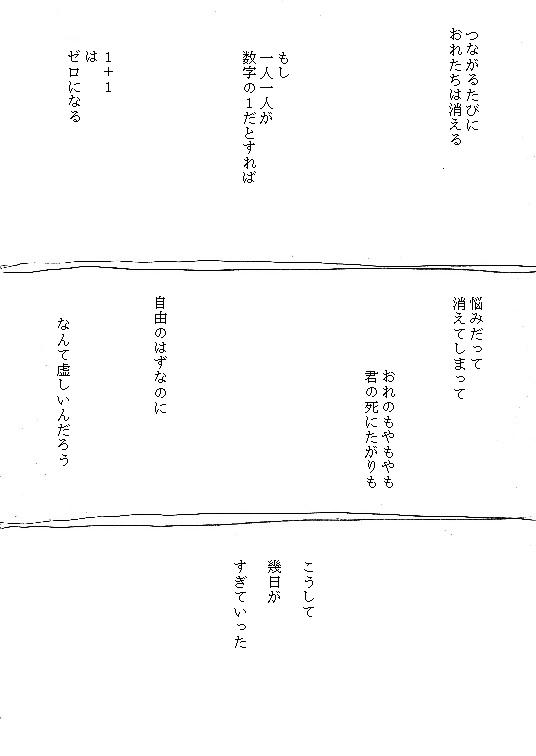 つながるたびに
おれたちは消える
もし
一人一人が
数字の１だとすれば
１＋１
は
ゼロになる
悩みだって
消えてしまって
おれのもやもやも
君の死にたがりも
自由のはずなのに
なんて虚しいんだろう
こうして
幾日が
すぎていった